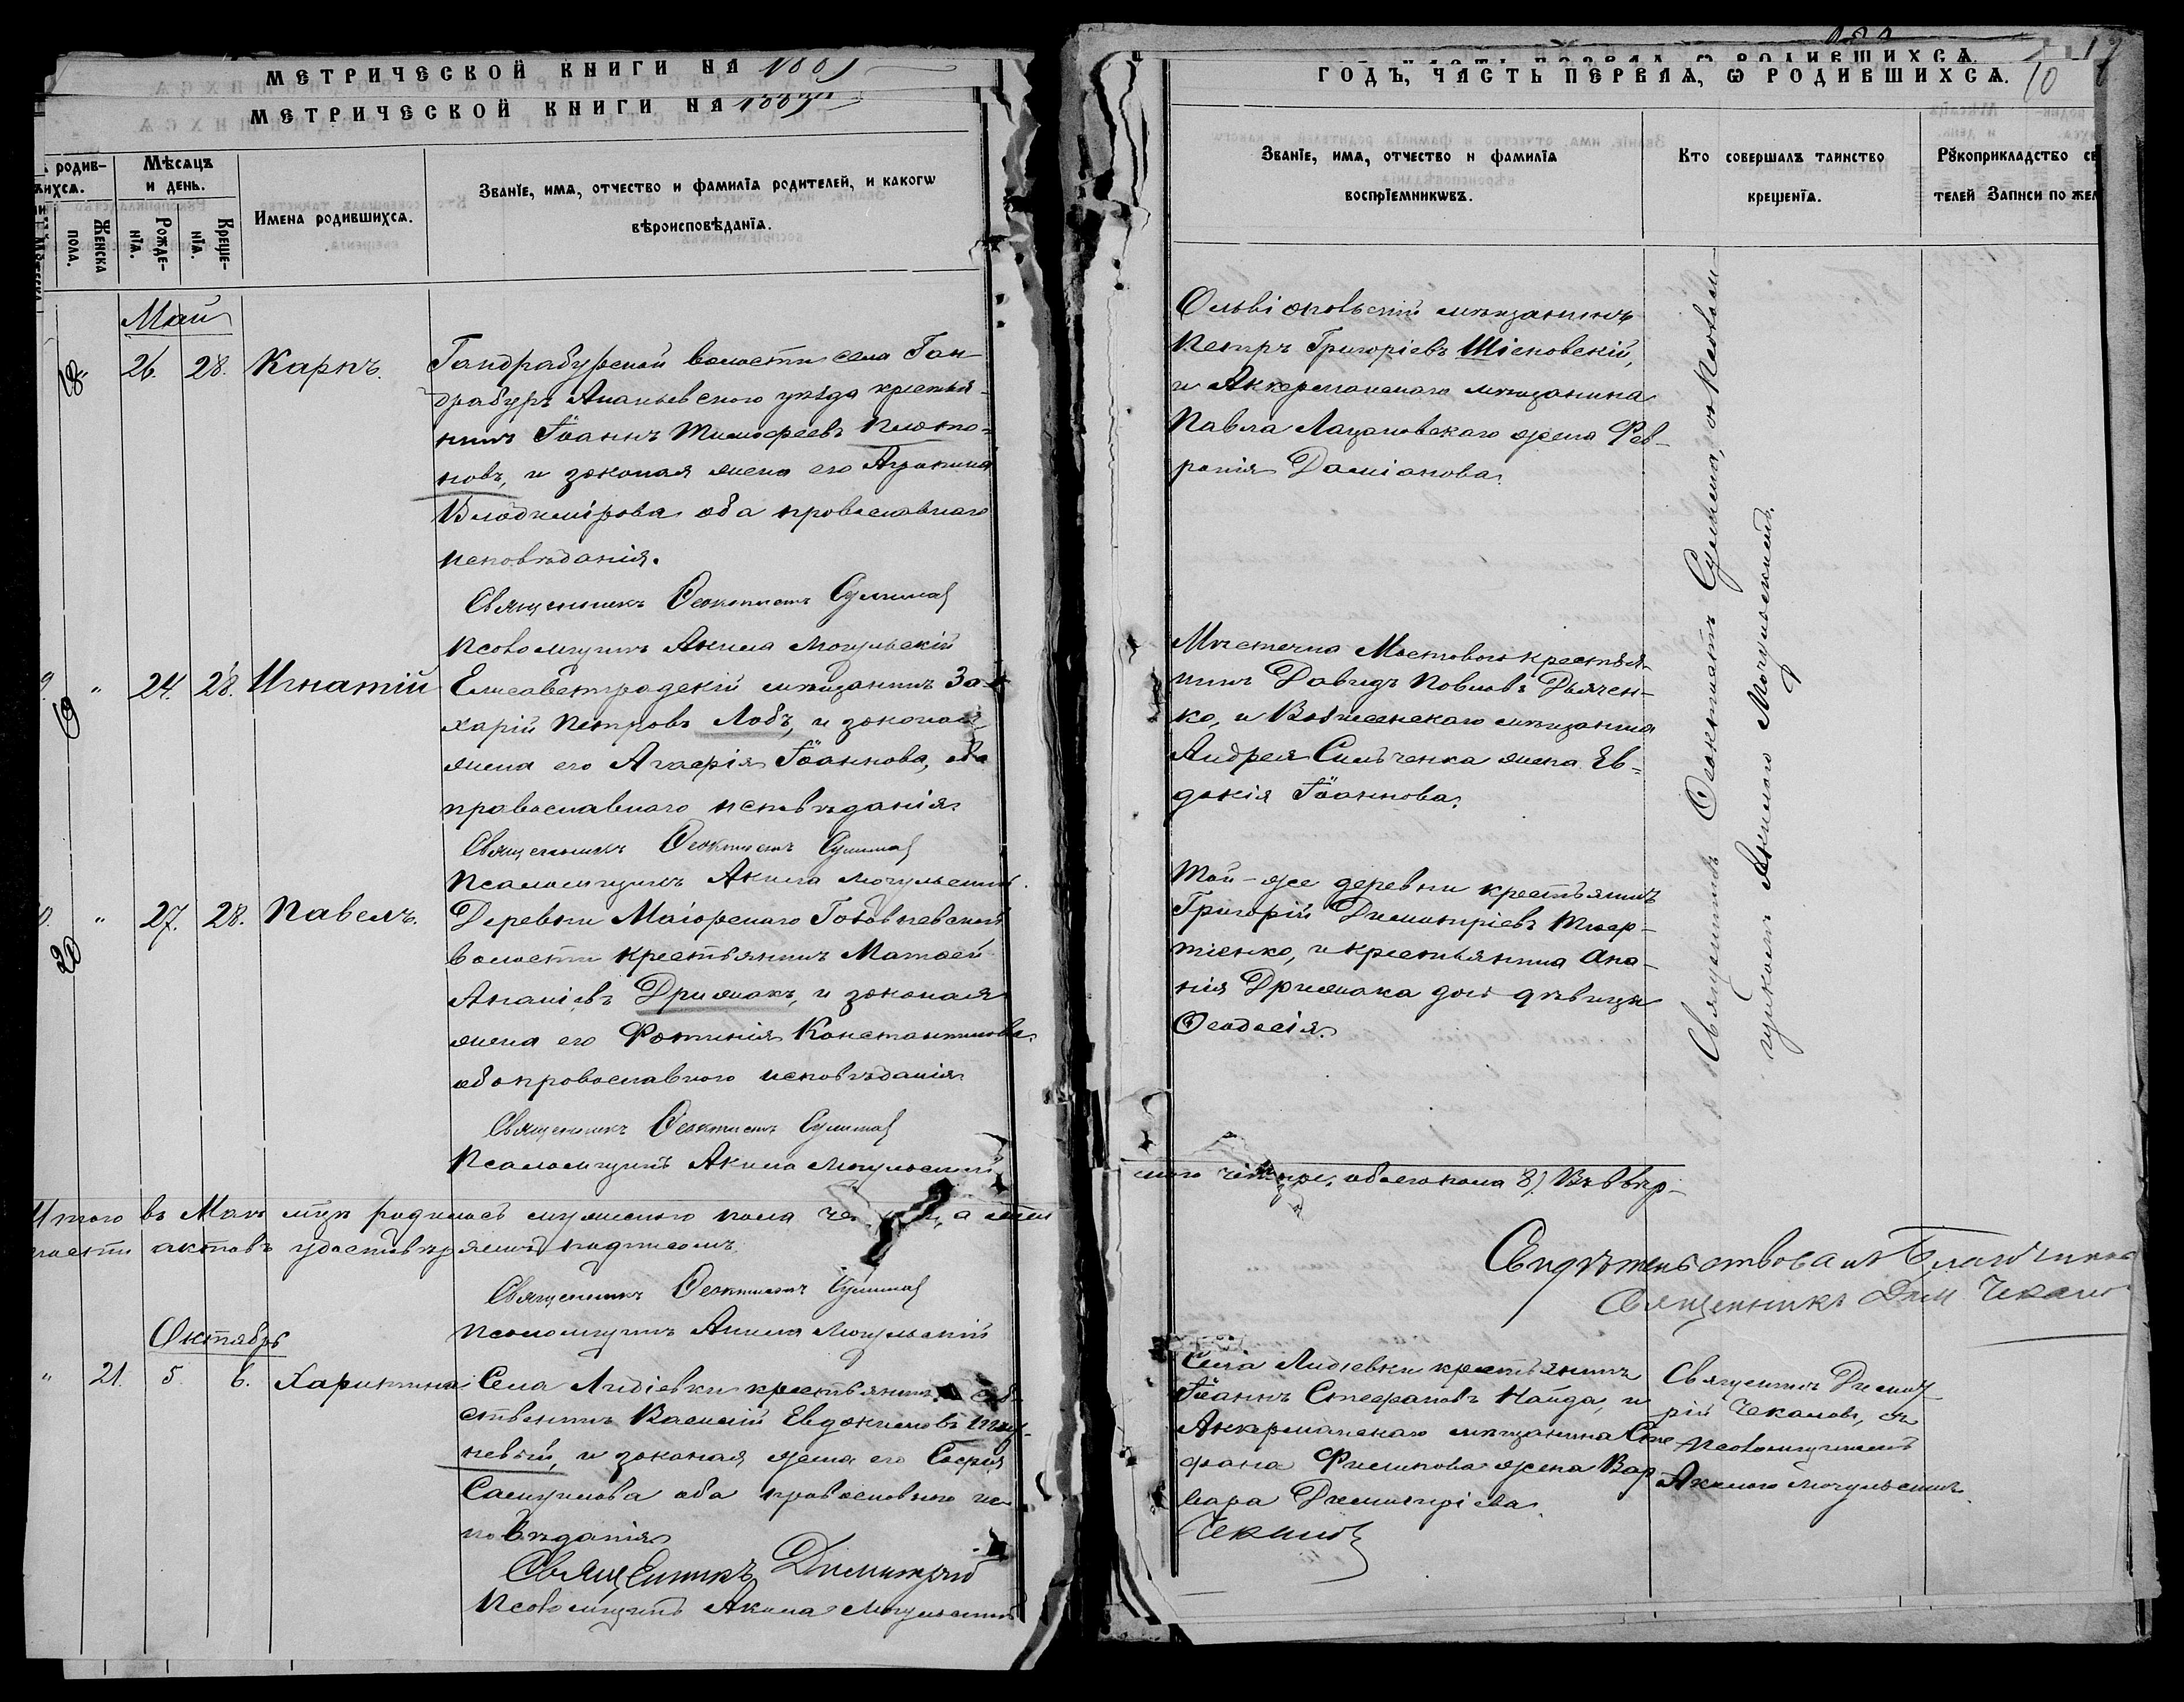 МЕТРИЧЕСКОЙ КНИГИ НА
МЕТРИЧЕСКОЙ КНИГИ НА 1885
родив-
шихся.
Мѣсяцъ
и день.
Женска
пола.
Рожде-
нїя.
Креще-
нїя.
Имена родившихся.
Званїе, имя, отчество и фамилїя родителей, и какогѡ
вѣроисповѣданїя.
Май
18 26. 28. Карпъ.
Гандрабурской волости села Ган-
драбуръ Ананьевскаго уѣзда крестья-
нинъ Іоаннъ Тимофеевъ Плато-
новъ, и законая жена его Агрипина
Владимірова оба православнаго
исповѣданія.
Священникъ Ѳеоктистъ Сулима
Псаломщикъ Акила Могульскій
" 24. 28. Игнатій
Елисаветградскій мѣщанинъ За-
харій Петровъ Лобъ, и законая
жена его Агафія Іоаннова, оба
православнаго исповѣданія.
Священникъ Ѳеоктистъ Сулима
Псаломщикъ Акила Могульскій.
20 " 27. 28. Павелъ.
Деревни Маіорскаго
волости крестьянинъ Матѳей
Ананіевъ Дримакъ, и законая
жена его Фотинія Константинова
оба православнаго исповѣданія
Священникъ Ѳеоктистъ Сулима
Псаломщикъ Акила Могульскій
Итого въ Маѣ м-цѣ родилось мужеского пола
актовъ удостовѣряемъ подписомъ.
Священникъ Ѳеоктистъ Сулима
Псаломщикъ Акила Могульскій
Октябрь
" 21. 5. 6. Харитина
Села Лидіевки крестьянинъ
Василій Евдокимовъ
и законая жена его Софія
Самуилова оба православного ис-
повѣданія
Священникъ Димитрій
Псаломщикъ Акила Могульскій
ГОДЪ, ЧАСТЬ ПЕРВАЯ, Ѡ РОДИВШИХСЯ. 10
Званїе, имя, отчество и фамилїя
воспрїемникѡвъ.
Кто совершалъ таинство
крещенїя.
Рꙋкоприкладство сви
телей Записи по жел
Ольвіопольскій мѣщанинъ
Петръ Григоріевъ Шісновскій,
и Аккерманскаго мѣщанина
Павла Лацановскаго жена Фев-
ронія Даміанова.
Мѣстечка Мостового крестья-
нинъ Давидъ Павловъ Дьячен-
ко, и Вознесенскаго мѣщанина
Андрея Сильченка жена Ев-
докія Іоаннова.
Той-же деревни крестьянинъ
Григорій Димитріевъ
и крестьянина Ана-
нія Дримака дочь дѣвица
Ѳеодосія.
Священникъ Ѳеоктистъ Сулима, съ Псалом-
щикомъ Акилою Могульскимъ.
обоего пола 8). Въ вѣр-
Свидѣтельствовалъ Благочинный
Священникъ Дим. Чекано
Села Лидіевки крестьянинъ
Іоаннъ Стефановъ Найда, и
Аккерманскаго мѣщанина Сте
фана Филипова жена Вар
вара Димитріева.
Чекановъ
Священникъ Димит-
рій Чекановъ, съ
Псаломщикомъ
Акилою Могульскимъ.